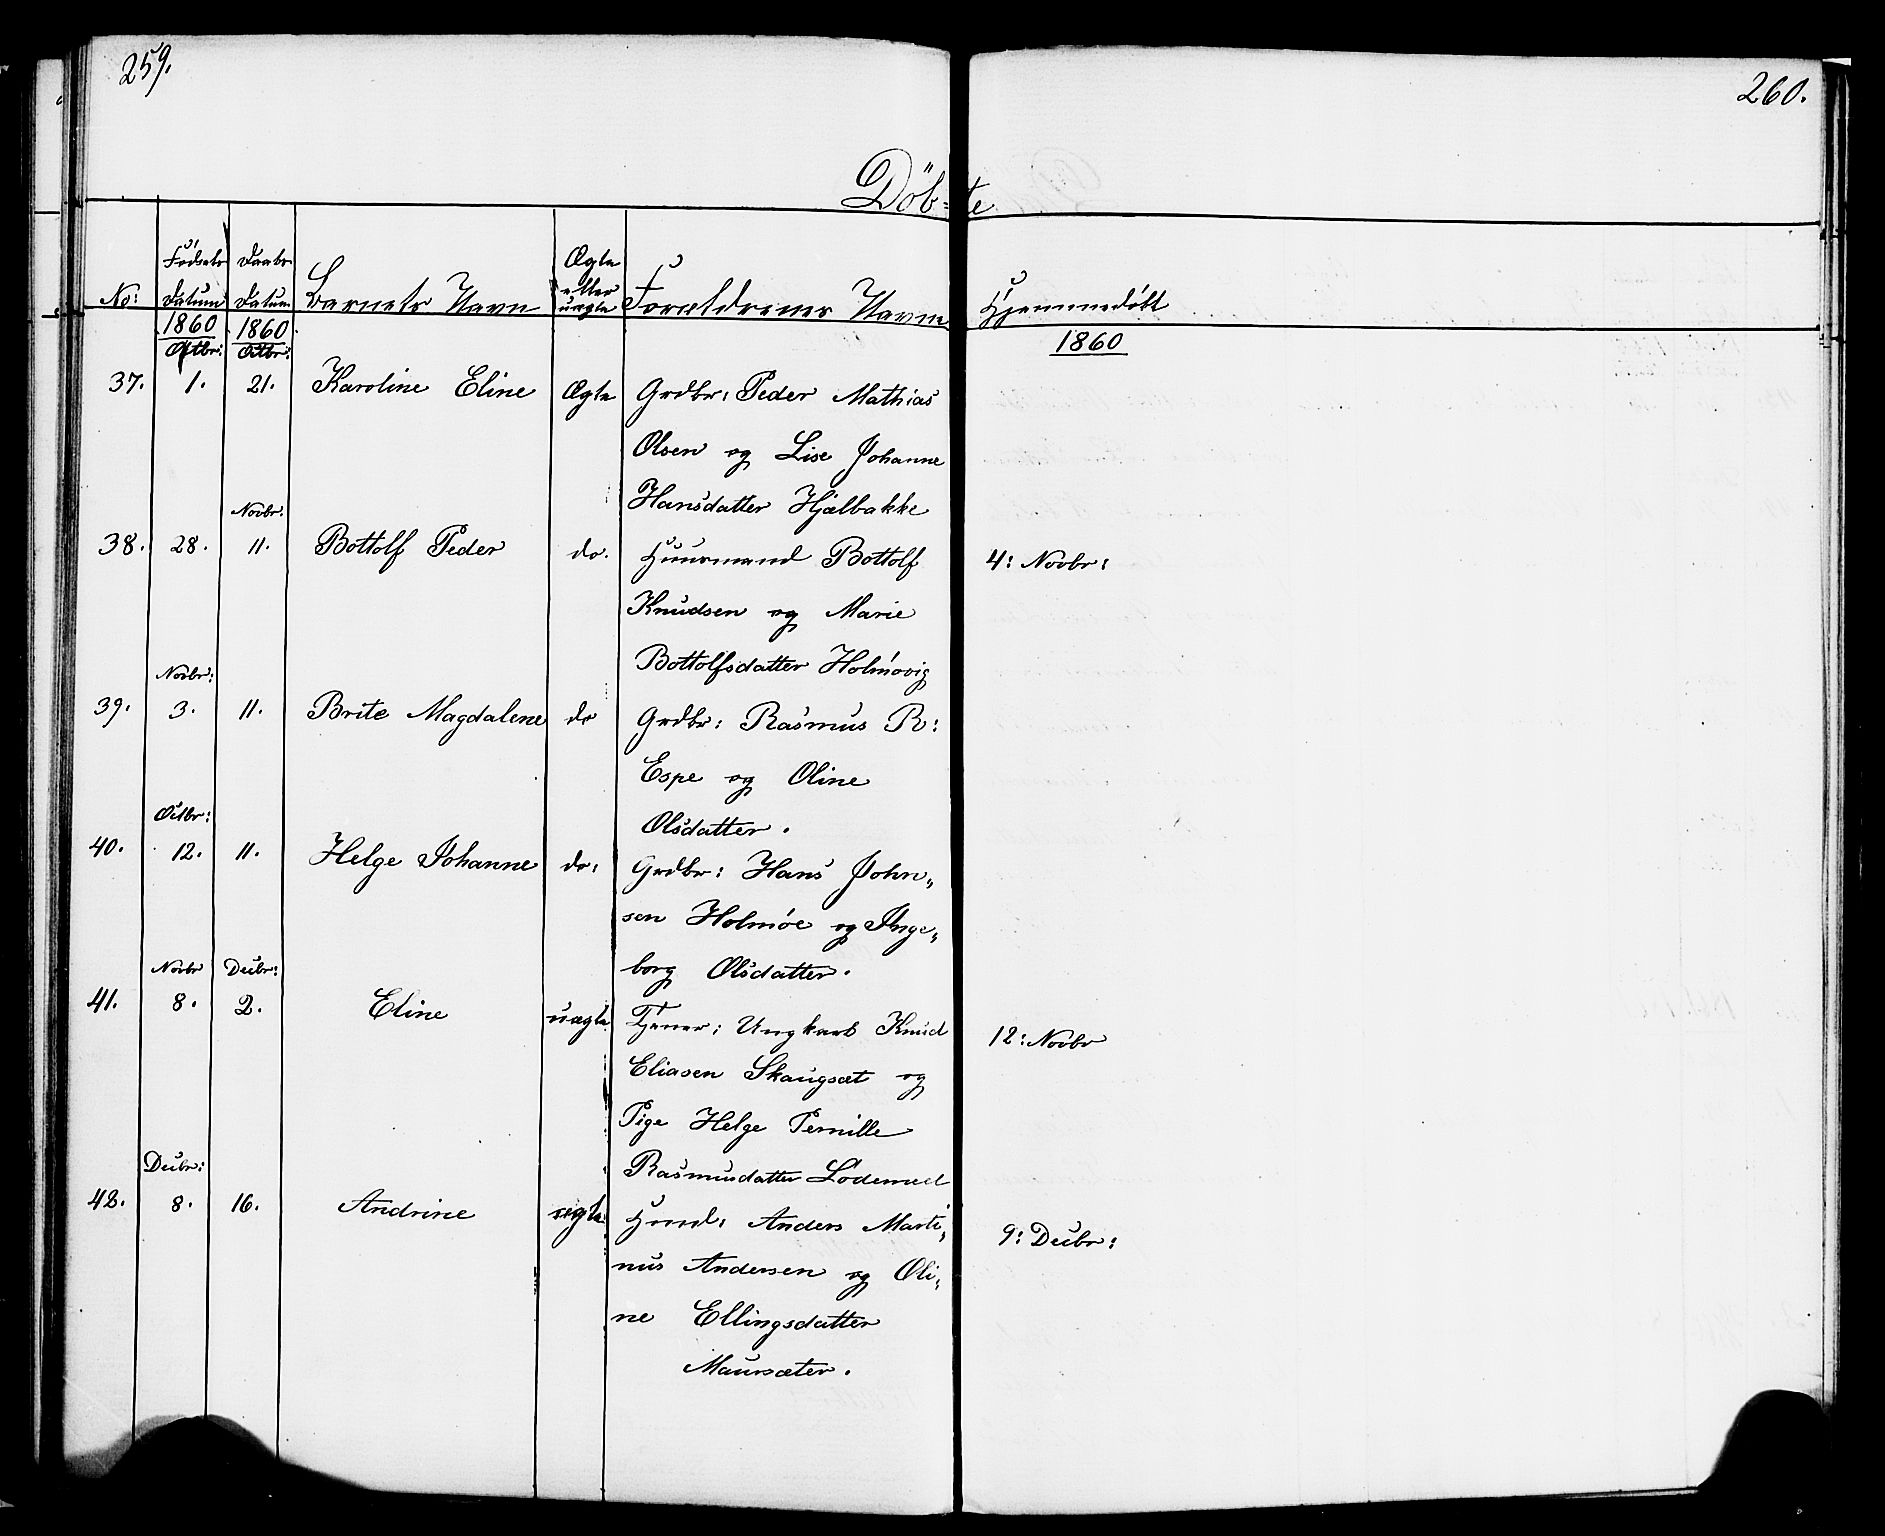 259.
260.
Döb-te
No: Fødsels Datum Daabs Datum Barnets Navn Ægte eller uægte Forældrenes Navne Hjemmedøbt
1860 1860 1860
Octbr: Octbr:
37. 1. 21. Karoline Eline Ægte Grdbr: Peder Mathias
Olsen og Lise Johanne
Hansdatter Hjælbakke
Novbr:
38. 28. 11. Bottolf Peder do. Huusmand Bottolf 4: Novbr:
Knudsen og Marie
Bottolfsdatter Holmøvig
Novbr:
39. 3. 11. Brite Magdalene do Grdbr: Rasmus R:
Espe og Oline
Olsdatter.
Octbr:
40. 12. 11. Helge Johanne do: Grdbr: Hans John„
sen Holmøe og Inge„
borg Olsdatter.
Novbr Decbr:
41. 8. 2. Eline uægte Tjener: Ungkarl Knud 12: Novbr
Eliasen Skaugsæt og
Pige Helge Pernille
Rasmusdatter Lødemel
Decbr:
42. 8. 16. Andrine ægte Hmd: Anders Marti„ 9: Decbr:
nus Andersen og Oli„
ne Ellingsdatter
Maursæter.